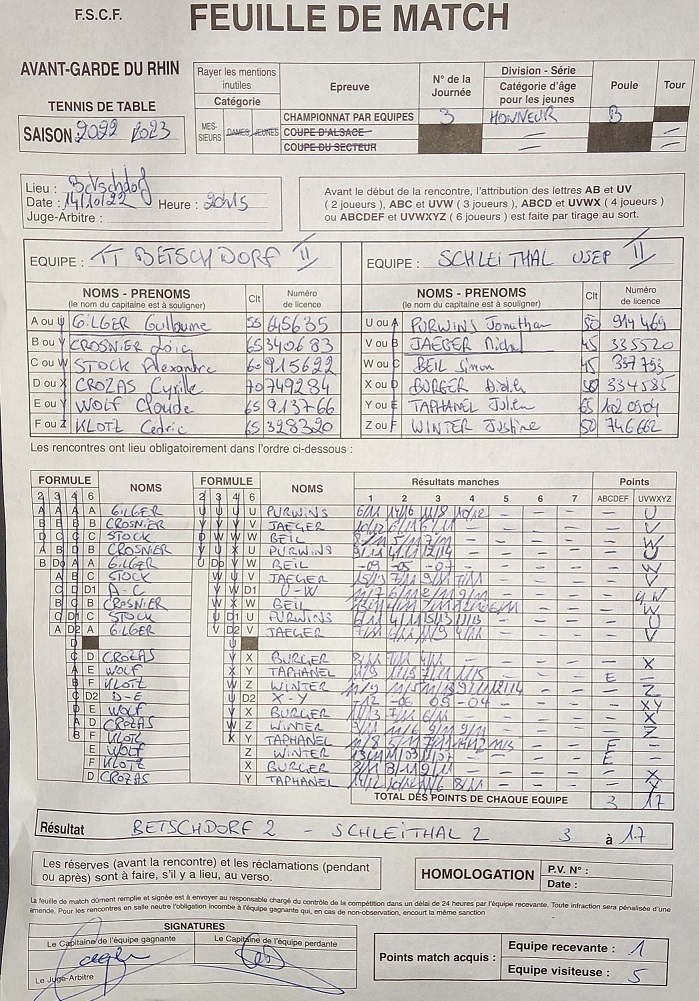 F.S.C.F.
FEUILLE DE MATCH
AVANT-GARDE DU RHIN
TENNIS DE TABLE
SAISON 2022 2023
Rayer les mentions inutiles
Catégorie
MES-SIEURS DAMES JEUNES
Epreuve
CHAMPIONNAT PAR EQUIPES
COUPE D'ALSACE
COUPE DU SECTEUR
N° de la Journée
3
Division - Série
Catégorie d'âge pour les jeunes
HONNEUR
Poule
B
Tour
Lieu : Betschdorf
Date : 14/10/22 Heure : 20h15
Juge-Arbitre :
Avant le début de la rencontre, l'attribution des lettres AB et UV
( 2 joueurs ), ABC et UVW ( 3 joueurs ), ABCD et UVWX ( 4 joueurs )
ou ABCDEF et UVWXYZ ( 6 joueurs ) est faite par tirage au sort.
EQUIPE : TT BETSCHDORF II
EQUIPE : SCHLEITHAL USEP II
NOMS - PRENOMS (le nom du capitaine est à souligner) Clt Numéro de licence
A ou U GILGER Guillaume 55 645635
B ou V CROSNIER Loïg 65 340683
C ou W STOCK Alexandre 60 915622
D ou X CROZAS Cyrille 70 749284
E ou Y WOLF Claude 65 913766
F ou Z KLOTZ Cedric 65 328320
NOMS - PRENOMS (le nom du capitaine est à souligner) Clt Numéro de licence
U ou A PURWINS Jonathan 50 914469
V ou B JAEGER Michel 45 335520
W ou C BEIL Simon 45 357753
X ou D BURGER Didier 334585
Y ou E TAPHANEL Julien 65 1020904
Z ou F WINTER Justine 50 746662
Les rencontres ont lieu obligatoirement dans l'ordre ci-dessous :
FORMULE NOMS FORMULE NOMS Résultats manches Points
2 3 4 6 2 3 4 6 1 2 3 4 5 6 7 ABCDEF UVWXYZ
A GILGER U PURWINS 6/11 11/8 10/12 - - - - U
B CROSNIER V JAEGER 10/12 6/11 6/11 - - - - - V
C STOCK W BEIL - - - - - W
B CROSNIER U PURWINS 9/11 4/11 12/14 - - - - - U
A GILGER W BEIL -09 -05 -07 - - - - - W
C STOCK V JAEGER 7/11 9/11 7/11 - - - - V
D1 A-C D1 U-W - - - UW
B CROSNIER W BEIL - - W
C STOCK U PURWINS - - - - U
A GILGER V JAEGER 7/11 9/11 4/11 - - - - V
D CROZAS X BURGER 8/11 7/11 4/11 - - - - - X
E WOLF Y TAPHANEL - - - E -
F KLOTZ Z WINTER 11/9 12/14 - - - Z
D2 D-E D2 X-Y -12 -06 09 -04 - - - XY
E WOLF X BURGER 11/13 7/11 6/11 - - - - - X
D CROZAS Z WINTER 9/11 9/11 - - - - Z
F KLOTZ Y TAPHANEL - - E -
E WOLF Z WINTER - - - E -
F KLOTZ X BURGER 8/11 9/11 - - - - - X
D CROZAS Y TAPHANEL 8/11 - - - - Y
TOTAL DES POINTS DE CHAQUE EQUIPE 3 17
Résultat BETSCHDORF 2 - SCHLEITHAL 2 3 à 17
Les réserves (avant la rencontre) et les réclamations (pendant
ou après) sont à faire, s'il y a lieu, au verso.
HOMOLOGATION
P.V. N° :
Date :
La feuille de match dûment remplie et signée est à envoyer au responsable chargé du contrôle de la compétition dans un délai de 24 heures par l'équipe recevante. Toute infraction sera pénalisée d'une
amende. Pour les rencontres en salle neutre l'obligation incombe à l'équipe gagnante qui, en cas de non-observation, encourt la même sanction
SIGNATURES
Le Capitaine de l'équipe gagnante
Le Capitaine de l'équipe perdante
Le Juge-Arbitre
Points match acquis :
Equipe recevante : 1
Equipe visiteuse : 5